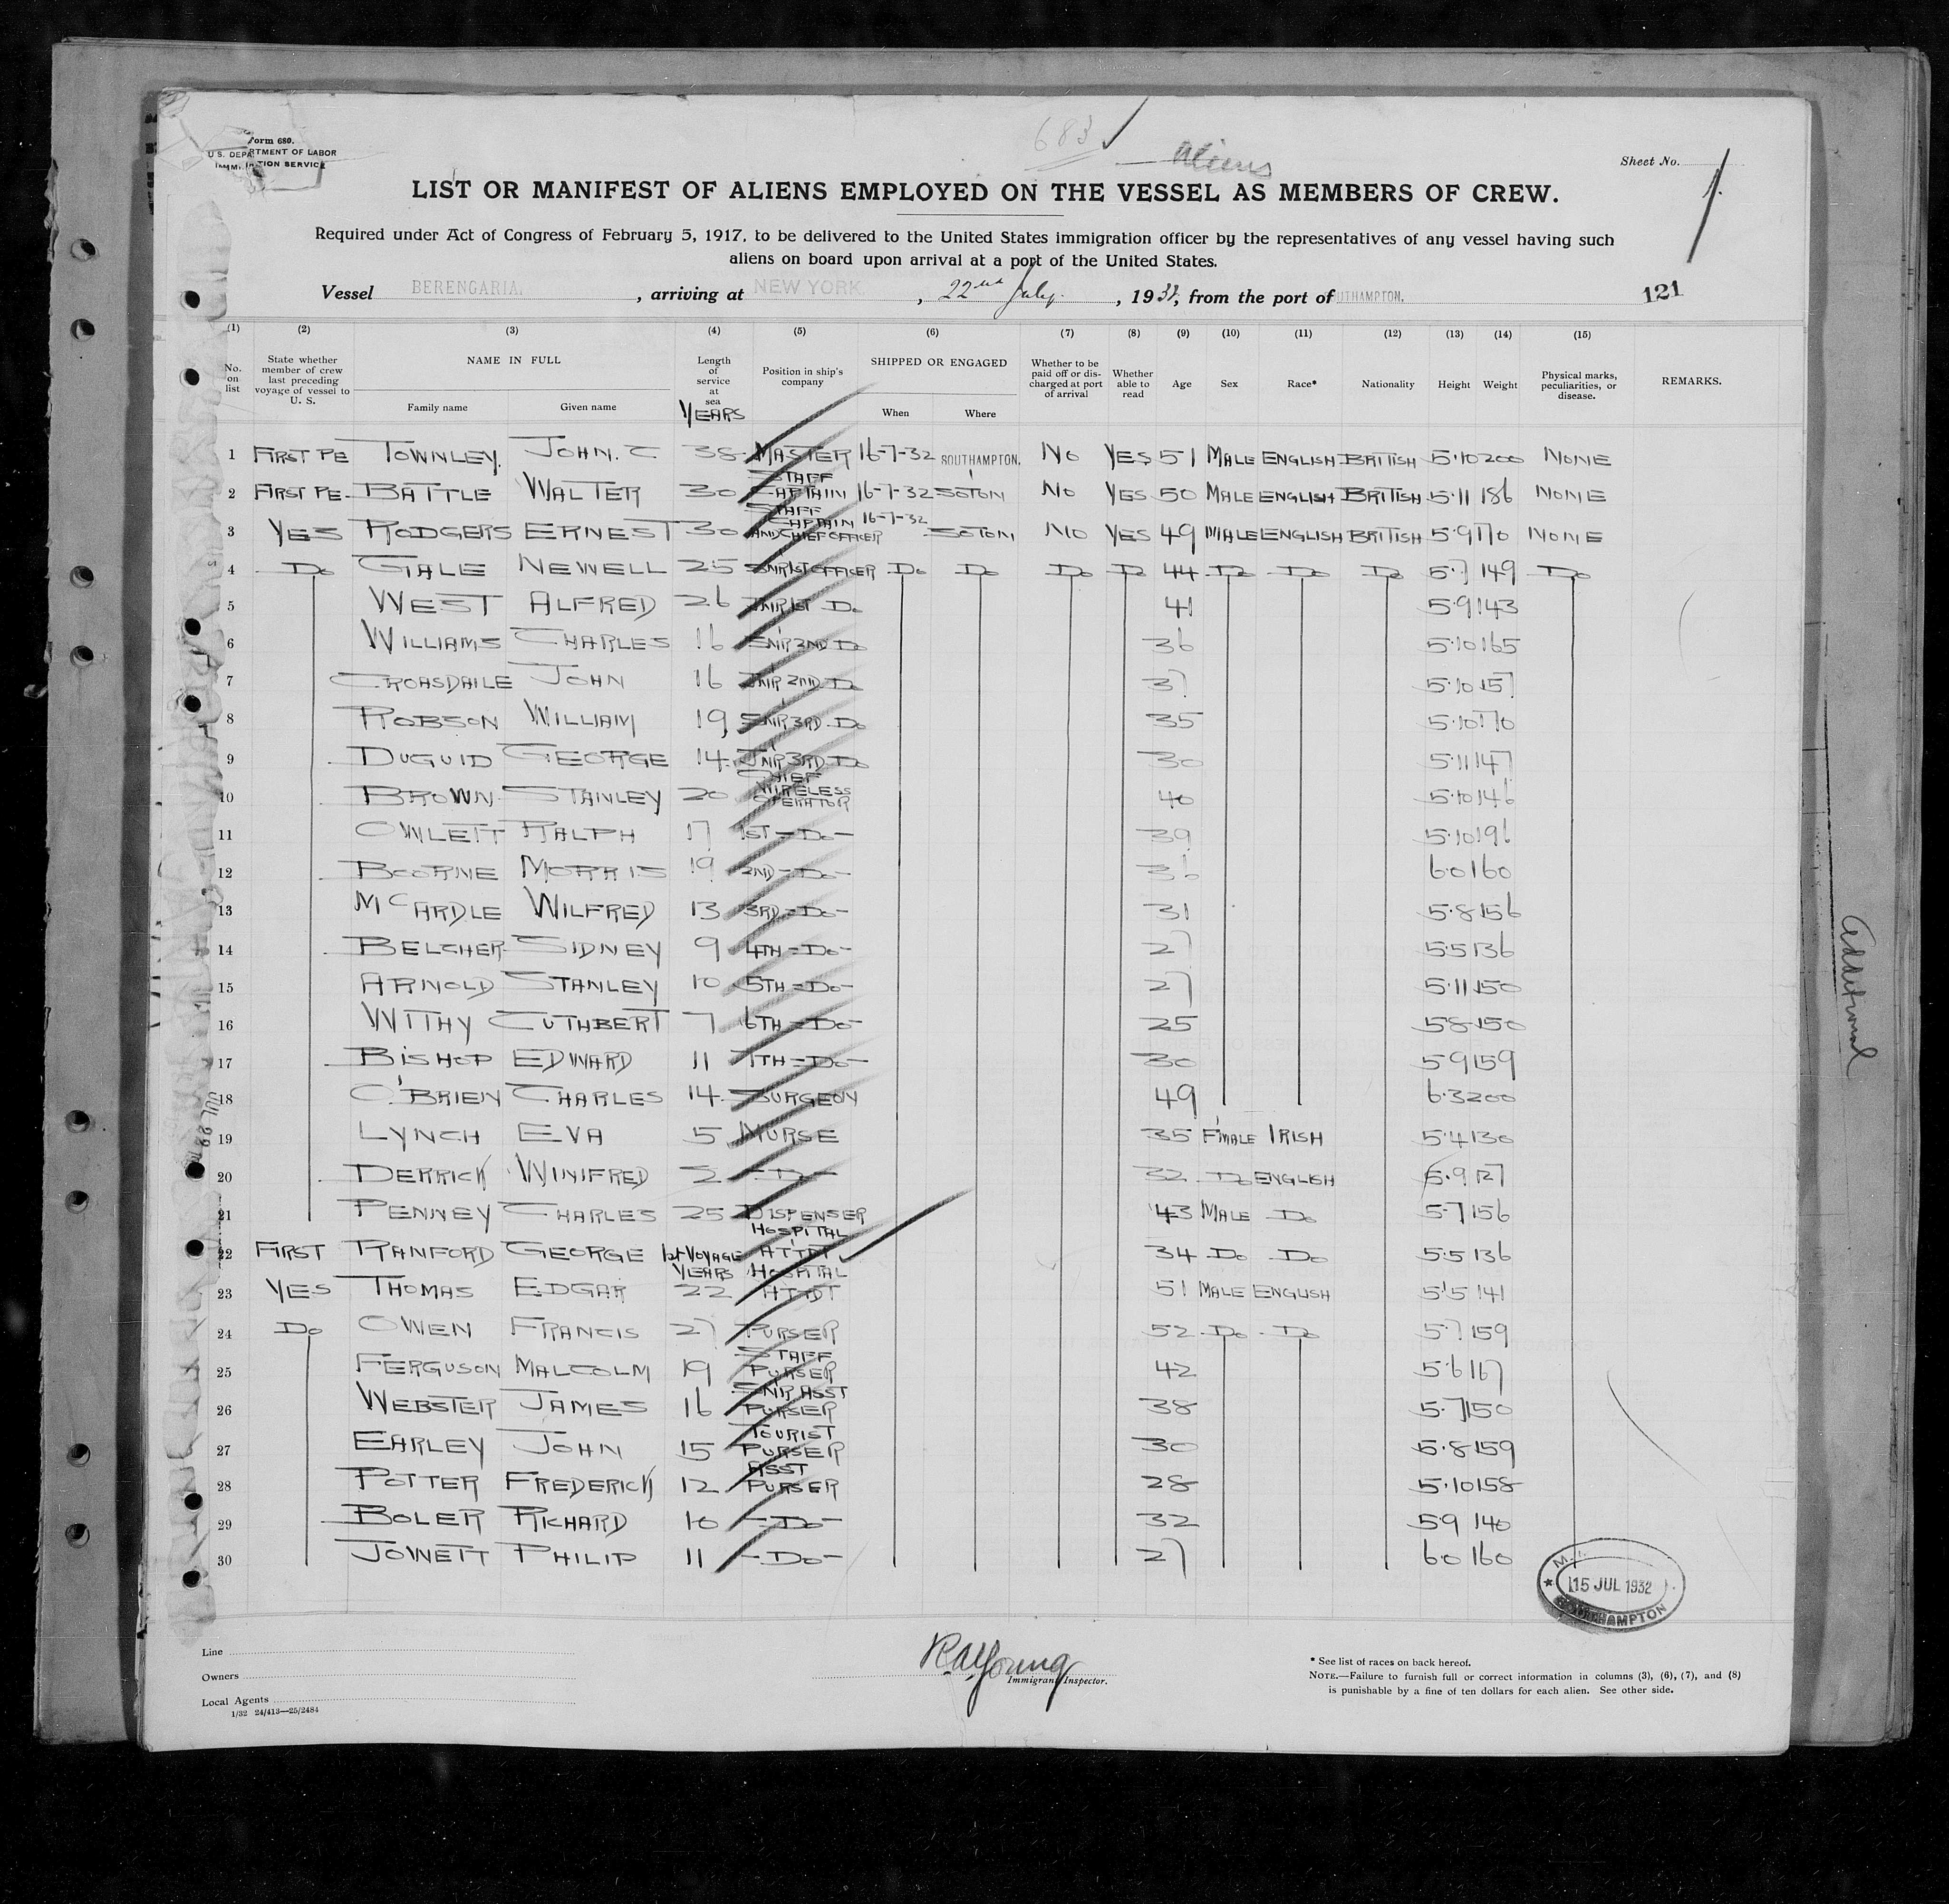 683
Aliens
Form 680.
U.S. DEPARTMENT OF LABOR
IMMIGRATION SERVICE
Sheet No. 1.
LIST OR MANIFEST OF ALIENS EMPLOYED ON THE VESSEL AS MEMBERS OF CREW.
Required under Act of Congress of February 5, 1917, to be delivered to the United States immigration officer by the representatives of any vessel having such
aliens on board upon arrival at a port of the United States.
Vessel BERENGARIA. , arriving at NEW YORK , 22nd July. , 1932, from the port of SOUTHAMPTON. 121
(1) (2) (3) (4) (5) (6) (7) (8) (9) (10) (11) (12) (13) (14) (15)
No. on list State whether member of crew last preceding voyage of vessel to U. S. NAME IN FULL Family name Given name Length of service at sea YEARS Position in ship's company SHIPPED OR ENGAGED When Where Whether to be paid off or discharged at port of arrival Whether able to read Age Sex Race* Nationality Height Weight Physical marks, peculiarities, or disease. REMARKS.
1 FIRST PE TOWNLEY. JOHN. C 38 MASTER 16-7-32 SOUTHAMPTON. NO YES 51 MALE ENGLISH BRITISH 5.10 200 NONE
2 FIRST PE BATTLE WALTER 30 STAFF CAPTAIN 16-7-32 SOTON NO YES 50 MALE ENGLISH BRITISH 5.11 186 NONE
3 YES RODGERS ERNEST 30 STAFF CAPTAIN AND CHIEF OFFICER 16-7-32 SOTON NO YES 49 MALE ENGLISH BRITISH 5.9 170 NONE
4 Do GALE NEWELL 25 SNR 1ST OFFICER Do Do Do Do 44 Do Do Do 5.7 149 Do
5 WEST ALFRED 26 JNR 1ST Do 41 5.9 143
6 WILLIAMS CHARLES 16 SNR 2ND Do 36 5.10 165
7 CROASDAILE JOHN 16 JNR 2ND Do 37 5.10 157
8 ROBSON WILLIAM 19 SNR 3RD Do 35 5.10 170
9 DUGUID GEORGE 14 JNR 3RD Do 30 5.11 147
10 BROWN STANLEY 20 CHIEF WIRELESS OPERATOR 40 5.10 146
11 OWLETT RALPH 17 1ST - Do - 39 5.10 196
12 BOORNE MORRIS 19 2ND - Do - 36 6.0 160
13 McARDLE WILFRED 13 3RD - Do - 31 5.8 156
14 BELCHER SIDNEY 9 4TH - Do - 27 5.5 136
15 ARNOLD STANLEY 10 5TH - Do - 27 5.11 150
16 WITHY CUTHBERT 7 6TH - Do - 25 5.8 150
17 BISHOP EDWARD 11 7TH - Do - 30 5.9 159
18 O'BRIEN CHARLES 14 SURGEON 49 6.3 200
19 LYNCH EVA 5 NURSE 35 F'MALE IRISH 5.4 130
20 DERRICK WINIFRED 2 - Do - 32 Do ENGLISH 5.9 127
21 PENNEY CHARLES 25 DISPENSER 43 MALE Do 5.7 156
22 FIRST RANFORD GEORGE 1st VOYAGE HOSPITAL ATTDT 34 Do Do 5.5 136
23 YES THOMAS EDGAR YEARS 22 HOSPITAL ATTDT 51 MALE ENGLISH 5.5 141
24 Do OWEN FRANCIS 27 PURSER 52 Do Do 5.7 159
25 FERGUSON MALCOLM 19 STAFF PURSER 42 5.6 167
26 WEBSTER JAMES 16 SNR ASST PURSER 38 5.7 150
27 EARLEY JOHN 15 TOURIST PURSER 30 5.8 159
28 POTTER FREDERICK 12 ASST PURSER 28 5.10 158
29 BOLER RICHARD 10 - Do - 32 5.9 140
30 JOWETT PHILIP 11 - Do - 27 6.0 160
15 JUL 1932
SOUTHAMPTON
Additional
Line
Owners
Local Agents
1/32 24/413—25/2484
R.A. Young
Immigrant Inspector.
* See list of races on back hereof.
NOTE.—Failure to furnish full or correct information in columns (3), (6), (7), and (8)
is punishable by a fine of ten dollars for each alien. See other side.